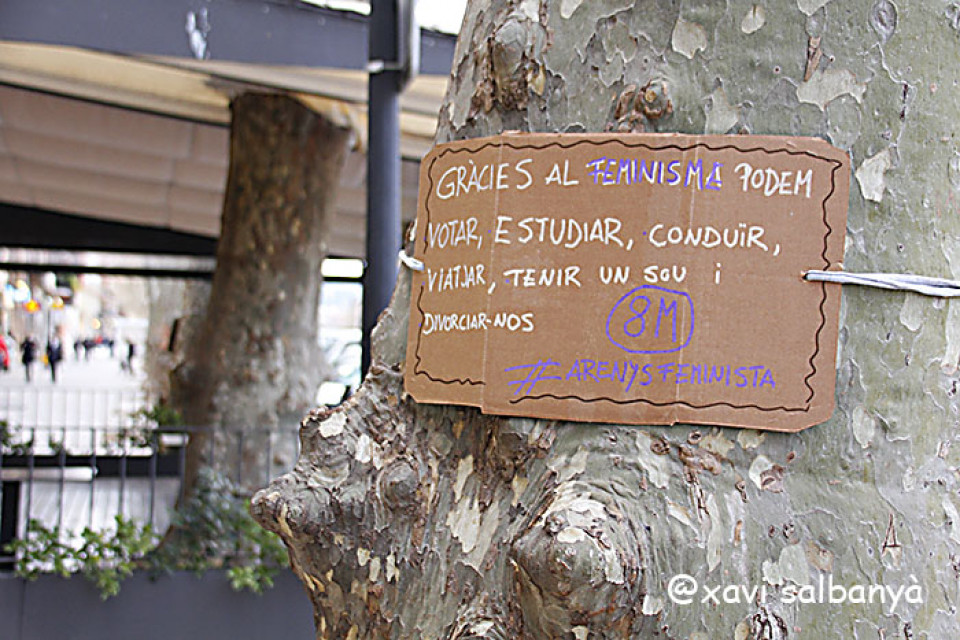 GRÀCIES AL FEMINISME PODEM
VOTAR, ESTUDIAR, CONDUÏR,
VIATJAR, TENIR UN SOU i
DIVORCIAR-NOS
8M
#ARENYSFEMINISTA
@xavi salbanyà